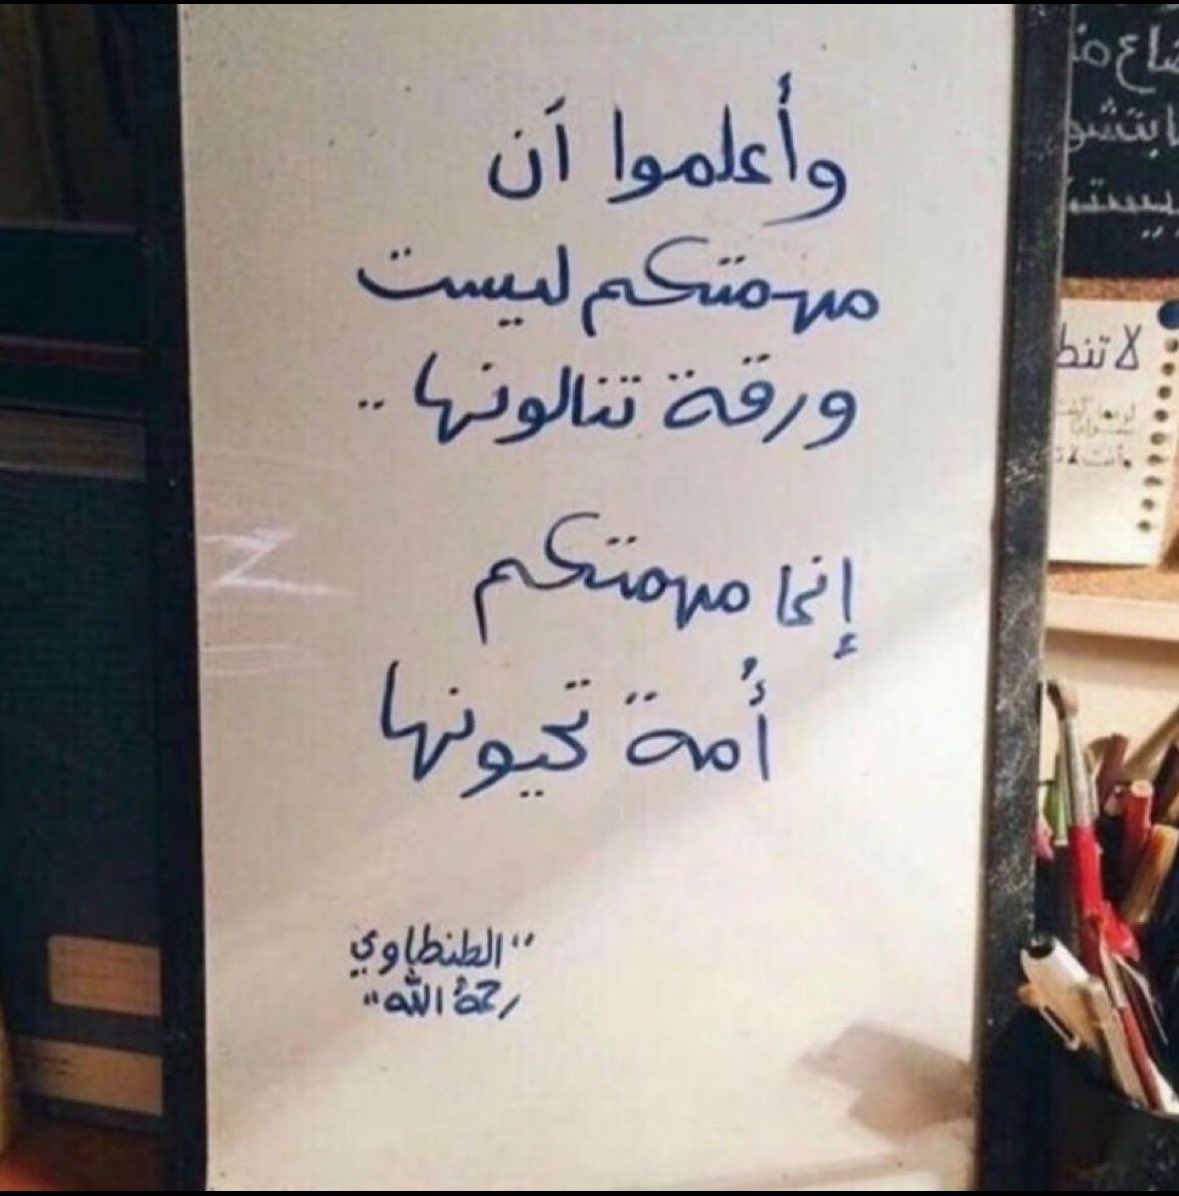 وأعلموا أن
مهمتكم ليست
ورقة تنالونها ..
إنما مهمتكم
أُمة تحيونها
"الطنطاوي
رحمهُ الله"
لا تنط